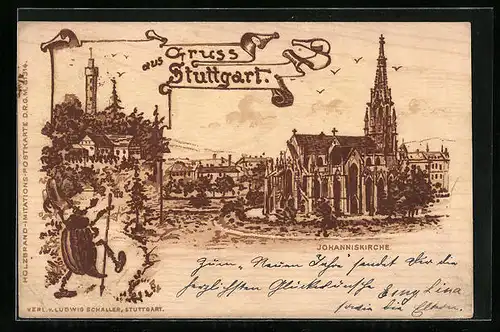 Gruss
aus
Stuttgart.
HOLZBRAND-IMITATIONS-POSTKARTE D.R.G.M.
JOHANNISKIRCHE
Zum "Neuen Jahre" sendet Dir die
herzlichsten Glückwünsche Emy Lina
sowie die Eltern.
VERL. V. LUDWIG SCHALLER, STUTTGART.